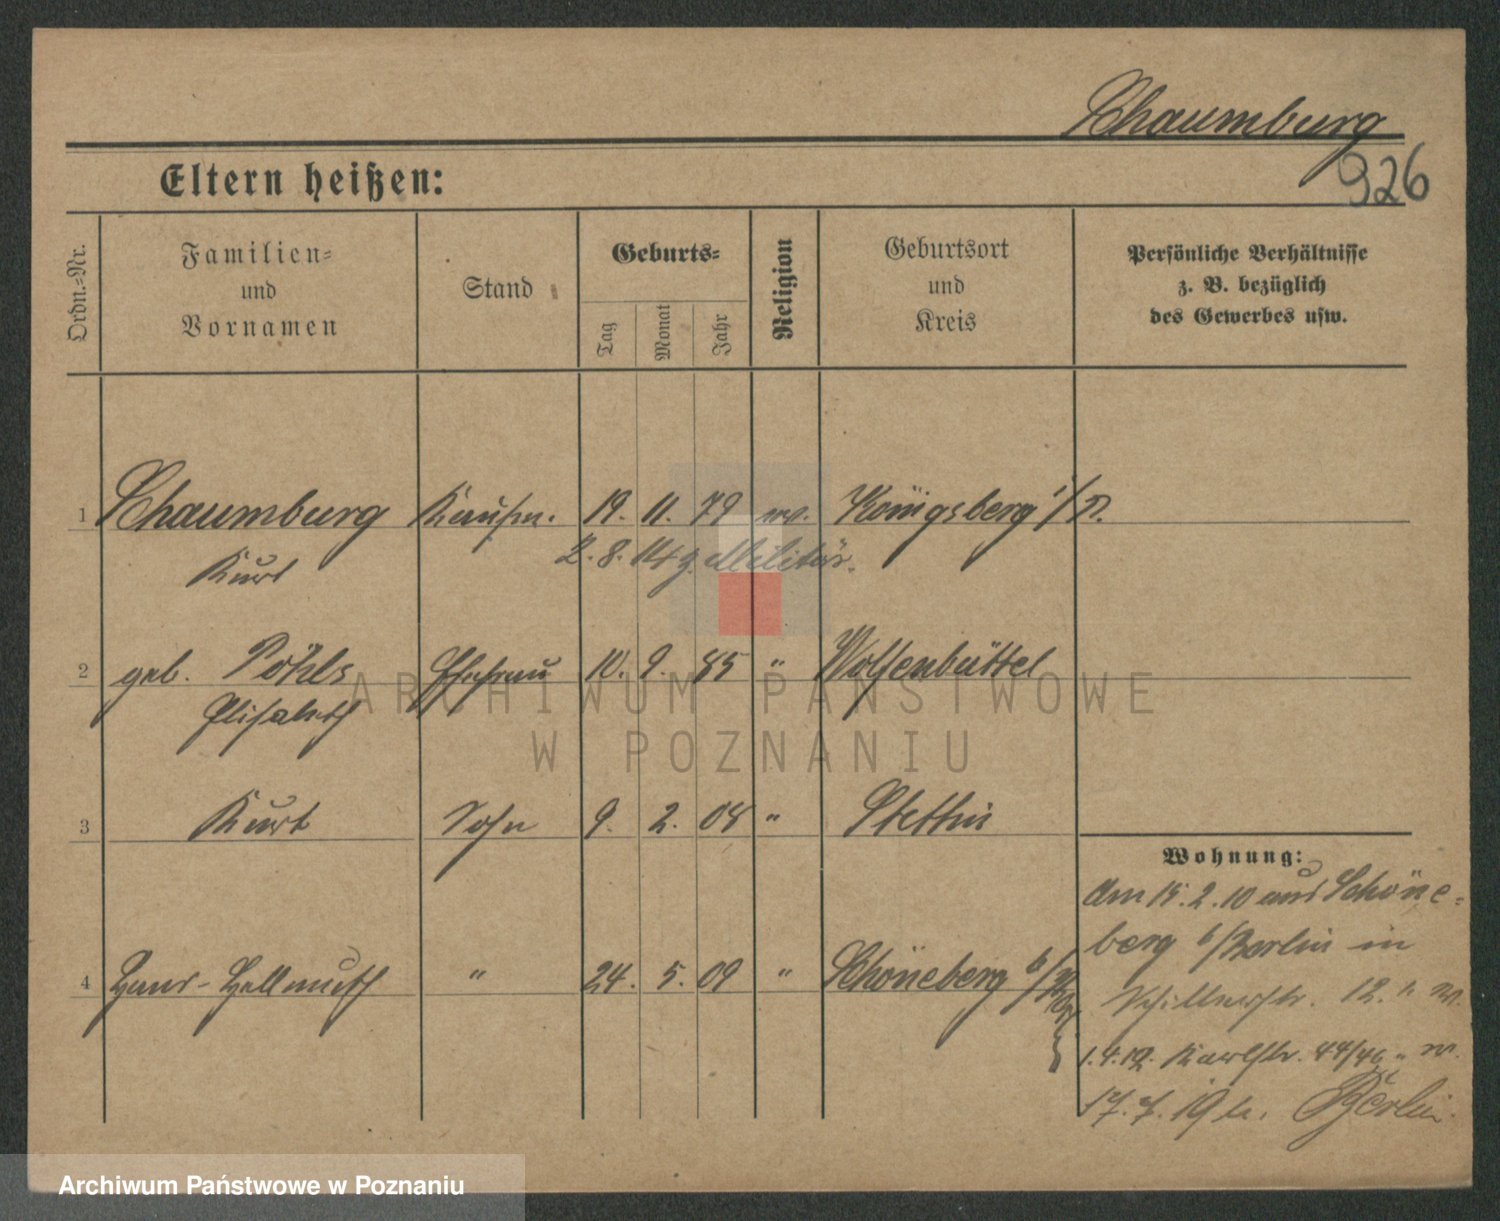 Schaumburg
926
Eltern heißen:
Ordn.-Nr.
Familien-
und
Vornamen
Stand
Geburts-
Tag
Monat
Jahr
Religion
Geburtsort
und
Kreis
Persönliche Verhältnisse
z. B. bezüglich
des Gewerbes usw.
1 Schaumburg Kaufm. 19. 11. 79 ev. Königsberg i/
Kurt 2. 8. 14 z. Militär.
2 geb. Pöhls Ehefrau 10. 9. 85 " Wolfenbüttel
Elisabeth
3 Kurt Sohn 9. 2. 08 " Stettin
4 Hans-Hellmuth " 24. 5. 09 " Schöneberg b/
Wohnung:
Am 15. 2. 10 aus Schöne-
berg b/Berlin in
Schillerstr. 12. "
1. 4. 12. Karlstr. 44/46 "
17. 7. 19 n. Berlin.
ARCHIWUM PAŃSTWOWE
W POZNANIU
Archiwum Państwowe w Poznaniu